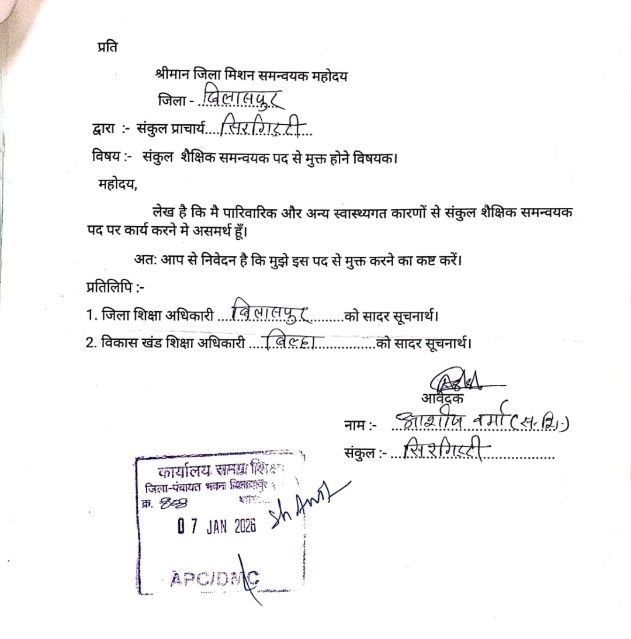 प्रति
श्रीमान जिला मिशन समन्वयक महोदय
जिला - बिलासपुर
द्वारा :- संकुल प्राचार्य....सिरगिट्टी...
विषय :- संकुल शैक्षिक समन्वयक पद से मुक्त होने विषयक।
महोदय,
लेख है कि मै पारिवारिक और अन्य स्वास्थ्यगत कारणों से संकुल शैक्षिक समन्वयक
पद पर कार्य करने मे असमर्थ हूँ।
अत: आप से निवेदन है कि मुझे इस पद से मुक्त करने का कष्ट करें।
प्रतिलिपि :-
1. जिला शिक्षा अधिकारी ...बिलासपुर.........को सादर सूचनार्थ।
2. विकास खंड शिक्षा अधिकारी ....बिल्हा..................को सादर सूचनार्थ।
आवेदक
नाम :- आशीष वर्मा (स. शि.)
संकुल :- ...सिरगिट्टी....................
कार्यालय समग्र शिक्षा
जिला-पंचायत भवन बिलासपुर
क्र.
07 JAN 2026
APC/DMC